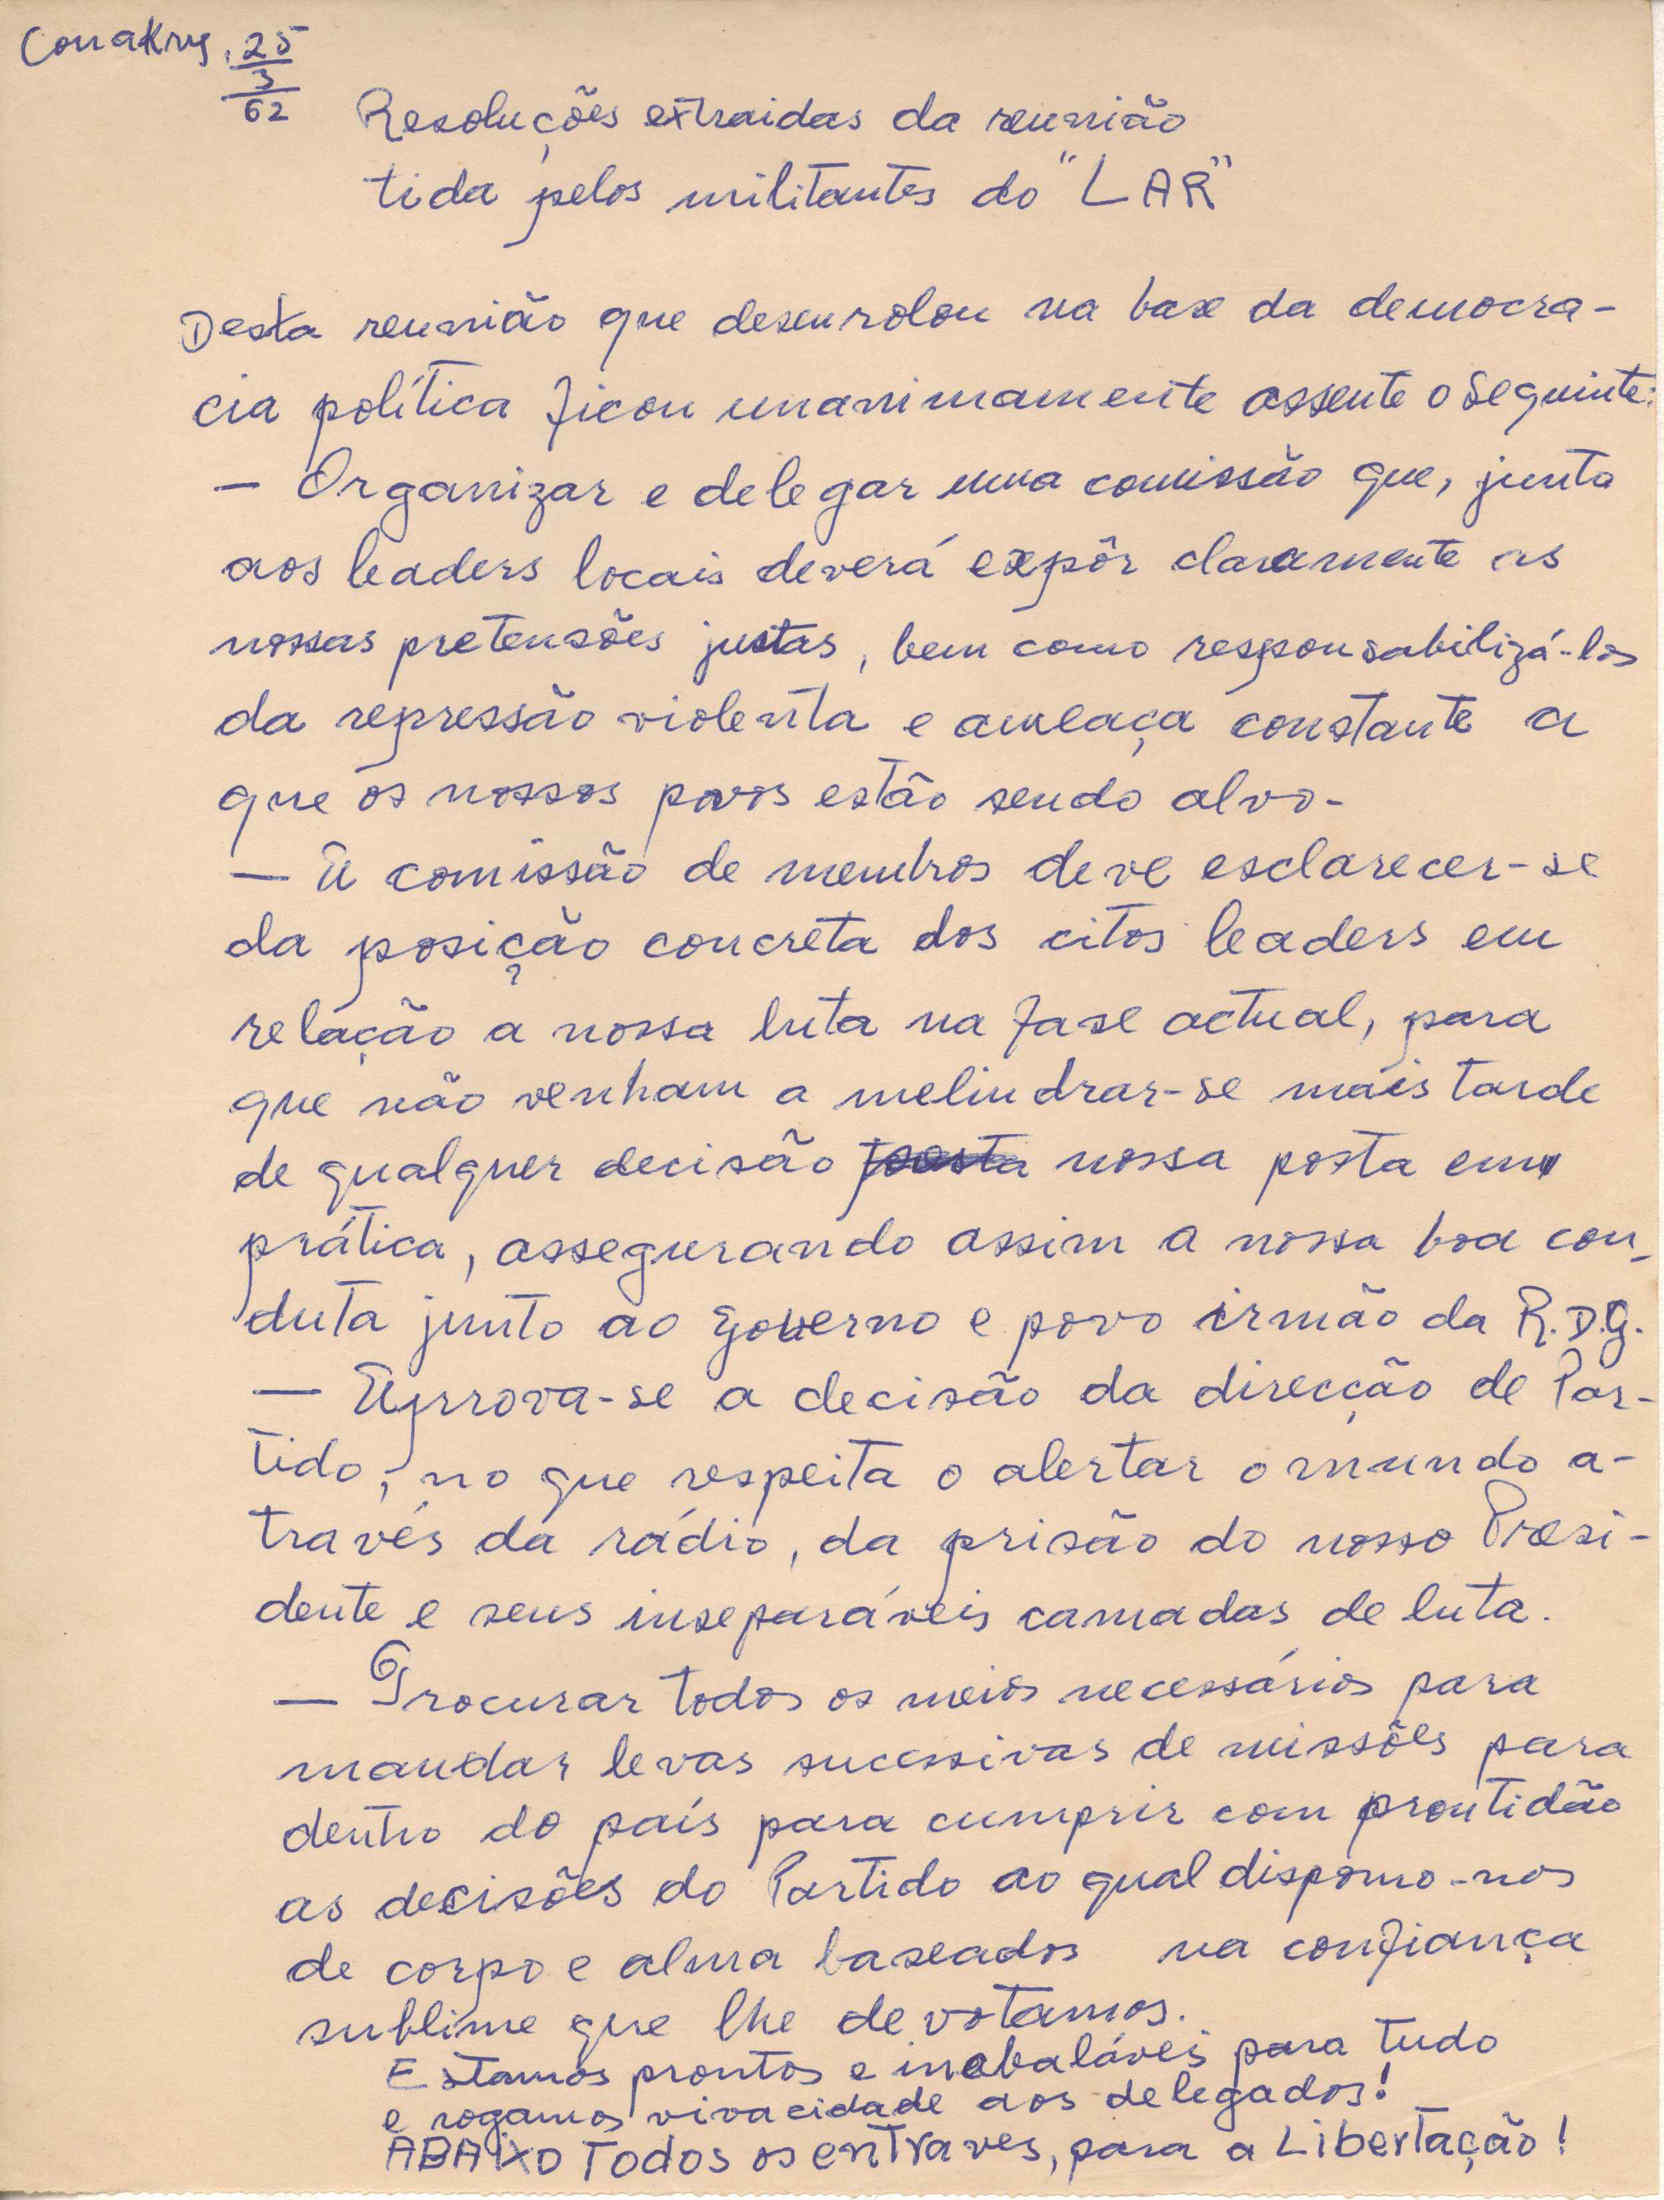 Conakry, 25/3/62
Resoluções extraidas da reunião
tida pelos militantes do "LAR"
Desta reunião que desenrolou na base da democra-
cia política ficou unanimamente assente o seguinte:
— Organizar e delegar uma comissão que, junto
aos leaders locais deverá expôr claramente as
nossas pretensões justas, bem como responsabilizá-los
da repressão violenta e ameaça constante a
que os nossos povos estão sendo alvo-
— A comissão de membros deve esclarecer-se
da posição concreta dos citos leaders em
relação a nossa luta na fase actual, para
que não venham a melindrar-se mais tarde
de qualquer decisão posta nossa posta em
prática, assegurando assim a nossa boa con-
duta junto ao governo e povo irmão da R.D.G.
— Aprova-se a decisão da direcção de Par-
tido, no que respeita o alertar o mundo a-
través da rádio, da prisão do nosso Presi-
dente e seus inseparáveis camadas de luta.
— Procurar todos os meios necessários para
mandar levas sucessivas de missões para
dentro do país para cumprir com prontidão
as decisões do Partido ao qual dispomo-nos
de corpo e alma baseados na confiança
sublime que lhe devotamos.
Estamos prontos e inabaláveis para tudo
e rogamos vivacidade aos delegados!
ABAIXO TODOS os entraves, para a Libertação!